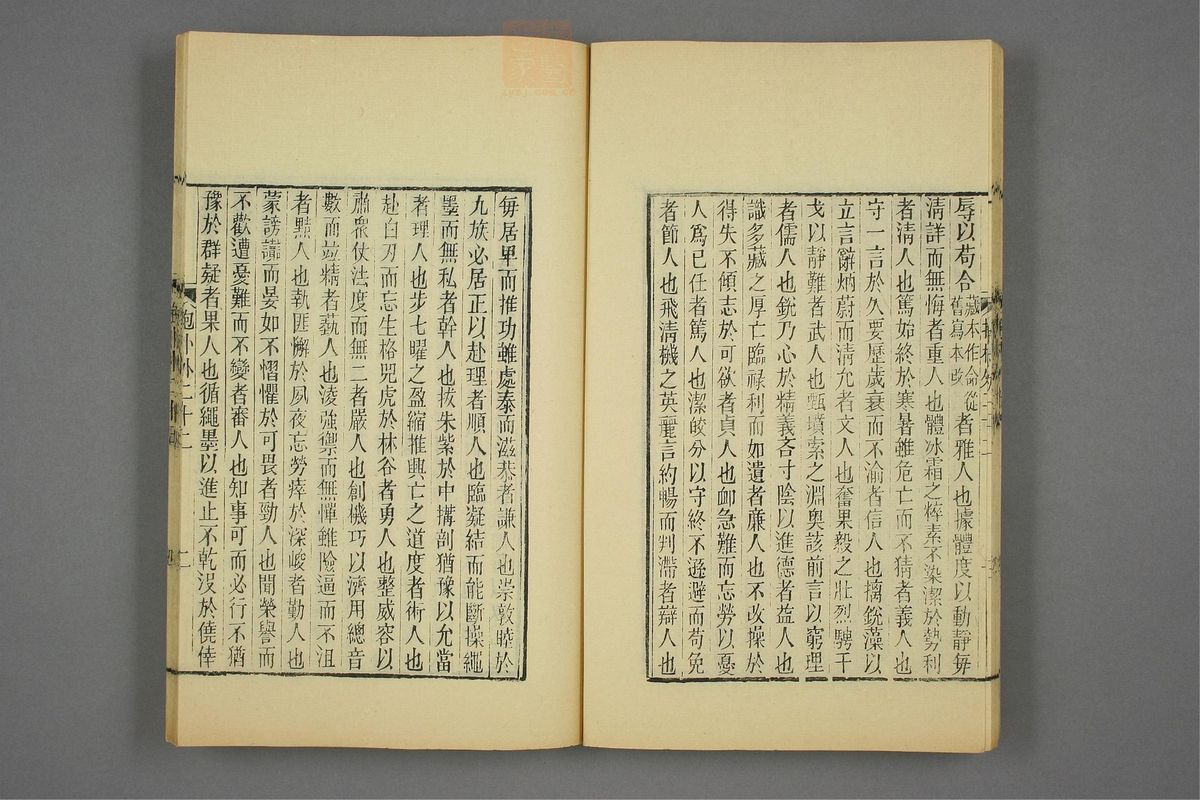 辱以苟合藏本作命從舊寫本改者雅人也據體度以動靜每
清詳而無悔者重人也體冰霜之粹素不染潔於勢利
者清人也篤始終於寒暑雖危亡而不猜者義人也
守一言於久要歷歲衰而不渝者信人也摛銳藻以
立言辭炳蔚而清允者文人也奮果毅之壯烈騁干
戈以靜難者武人也甄墳索之淵奧該前言以窮理
者儒人也銳乃心於精義吝寸陰以進德者益人也
識多藏之厚亡臨祿利而如遺者廉人也不改操於
得失不傾志於可欲者貞人也卹急難而忘勞以憂
人為己任者篤人也潔皎分以守終不遜避而苟免
者節人也飛清機之英麗言約暢而判滯者辯人也
每居卑而推功雖處泰而滋恭者謙人也崇敦睦於
九族必居正以赴理者順人也臨凝結而能斷操繩
墨而無私者幹人也拔朱紫於中搆剖猶豫以允當
者理人也步七曜之盈縮推興亡之道度者術人也
赴白刃而忘生格兕虎於林谷者勇人也整威容以
肅眾仗法度而無二者嚴人也創機巧以濟用總音
數而竝精者藝人也淩強禦而無憚雖險逼而不沮
者黠人也執匪懈於夙夜忘勞瘁於深峻者勤人也
蒙謗讟而晏如不慴懼於可畏者勁人也聞榮譽而
不歡遭憂難而不變者審人也知事可而必行不猶
豫於群疑者果人也循繩墨以進止不乾沒於僥倖
抱朴外二十二
二